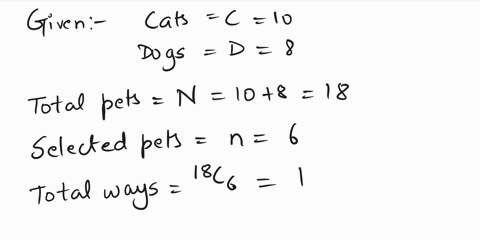 Given:- Cats = C = 10
Dogs = D = 8
Total pets = N = 10+8 = 18
Selected pets = n = 6
Total ways = ¹⁸C₆ = 1